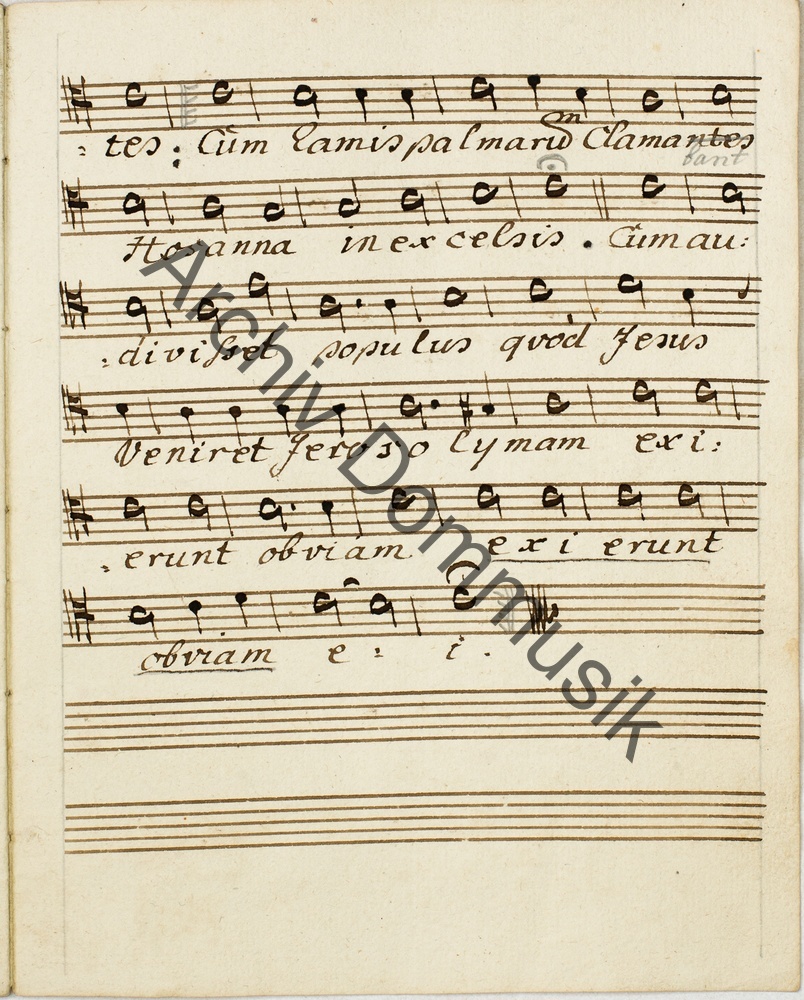 : tes : Cum Ramis palmarum Clamantes
bant
Hosanna in excelsis . Cum au:
: divisset populus quòd Jesus
Veniret Jerosolymam exi:
: erunt obviam exierunt
obviam e : i .
Archiv Dommusik